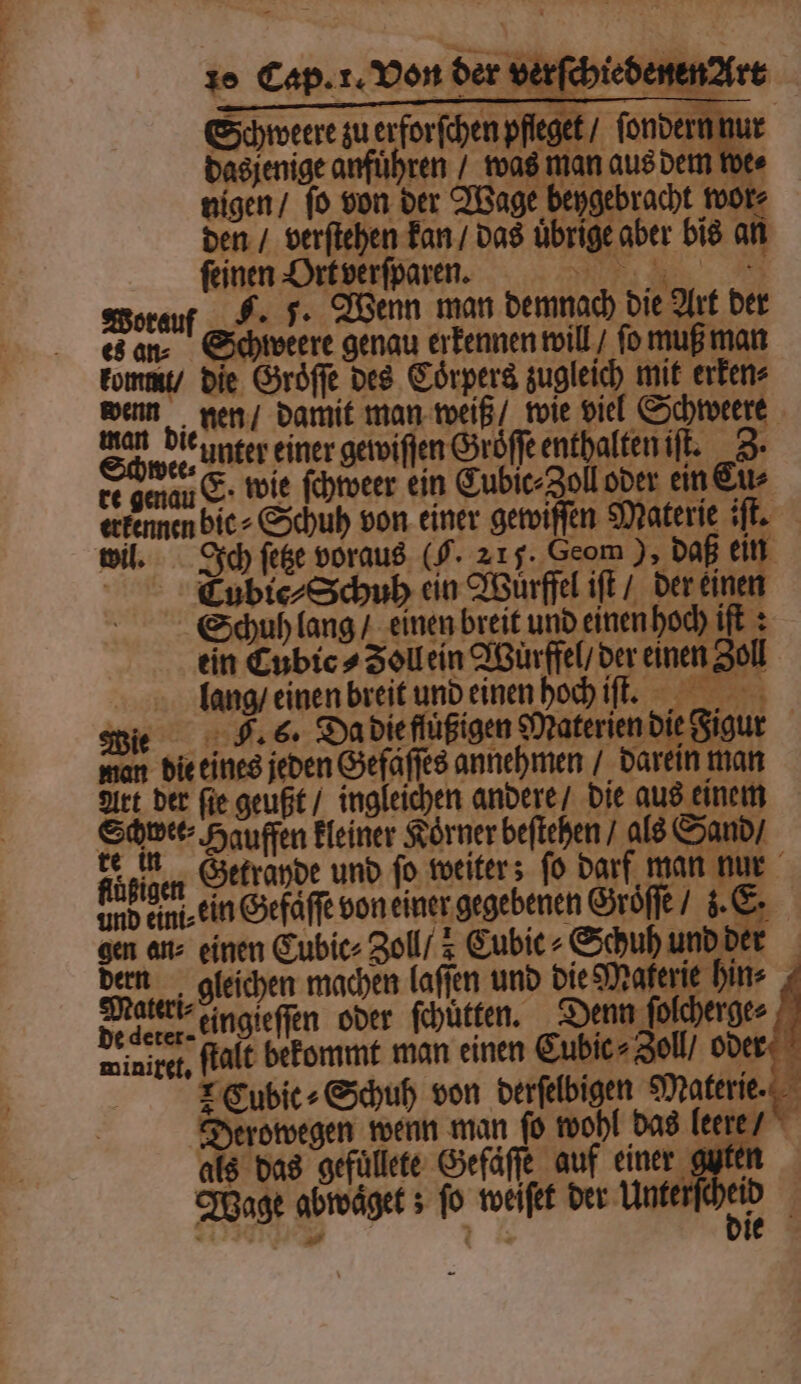 10 Cap. 1. Von der verſchiedenen Art
Schweere zu erforſchen pfleget / ſondern nur
dasjenige anfuͤhren / was man aus dem we⸗
nigen / ſo von der Wage beygebracht wor⸗
den / verſtehen kan / das uͤbrige aber bis an
ſeinen Ort verſparen.
Worauf
es an⸗
kommt/
wenn
man die
Schwee⸗
re genau
erkennen
wil.
§. 5. Wenn man demnach die Art der
Schweere genau erkennen will / ſo muß man
die Groͤſſe des Coͤrpers zugleich mit erken⸗
nen / damit man weiß / wie viel Schweere
unter einer gewiſſen Groͤſſe enthalten iſt. Z.
E. wie ſchweer ein Cubic⸗Zoll oder ein Cu⸗
bic⸗Schuh von einer gewiſſen Materie iſt.
Ich ſetze voraus (§. 215. Geom ), daß ein
Cubic⸗Schuh ein Wuͤrffel iſt / der einen
Schuh lang / einen breit und einen hoch iſt :
ein Cubic⸗Zoll ein Wuͤrffel / der einen Zoll
lang / einen breit und einen hoch iſt.
Wie
man die
Art der
Schwee⸗
re in
fluͤßigen
und eini⸗
gen an⸗
dern
Materi⸗
de deter-
miniret,
§. 6. Da die fluͤßigen Materien die Figur
eines jeden Gefaͤſſes annehmen / darein man
ſie geußt / ingleichen andere / die aus einem
Hauffen kleiner Koͤrner beſtehen / als Sand /
Getrayde und ſo weiter; ſo darf man nur
ein Gefaͤſſe von einer gegebenen Groͤſſe / z. E.
einen Cubic⸗Zoll / Cubic⸗Schuh und der
gleichen machen laſſen und die Materie hin⸗
eingieſſen oder ſchuͤtten. Denn ſolcherge⸗
ſtalt bekommt man einen Cubic⸗Zoll / oder
Cubic⸗Schuh von derſelbigen Materie.
Derowegen wenn man ſo wohl das leere /
als das gefuͤllete Gefaͤſſe auf einer guten
Wage abwaͤget ; ſo weiſet der Unterſcheid
die